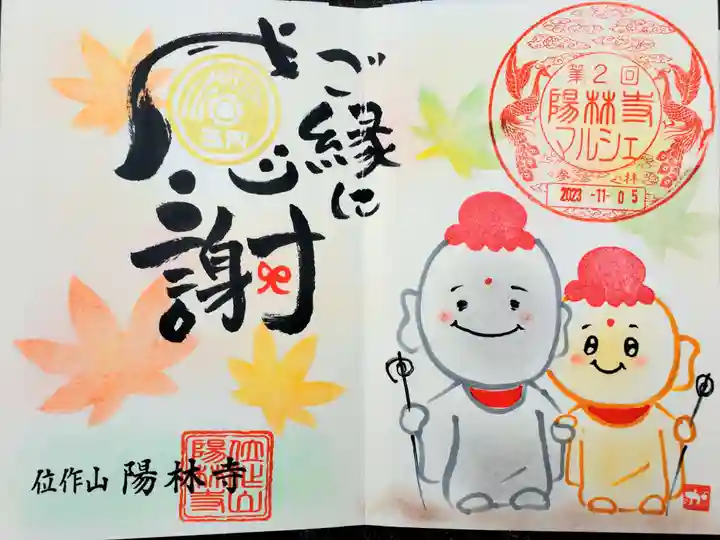 ご縁に
感謝
位作山 陽林寺
第2回
陽林寺
マルシェ
参拝
2023-11-05